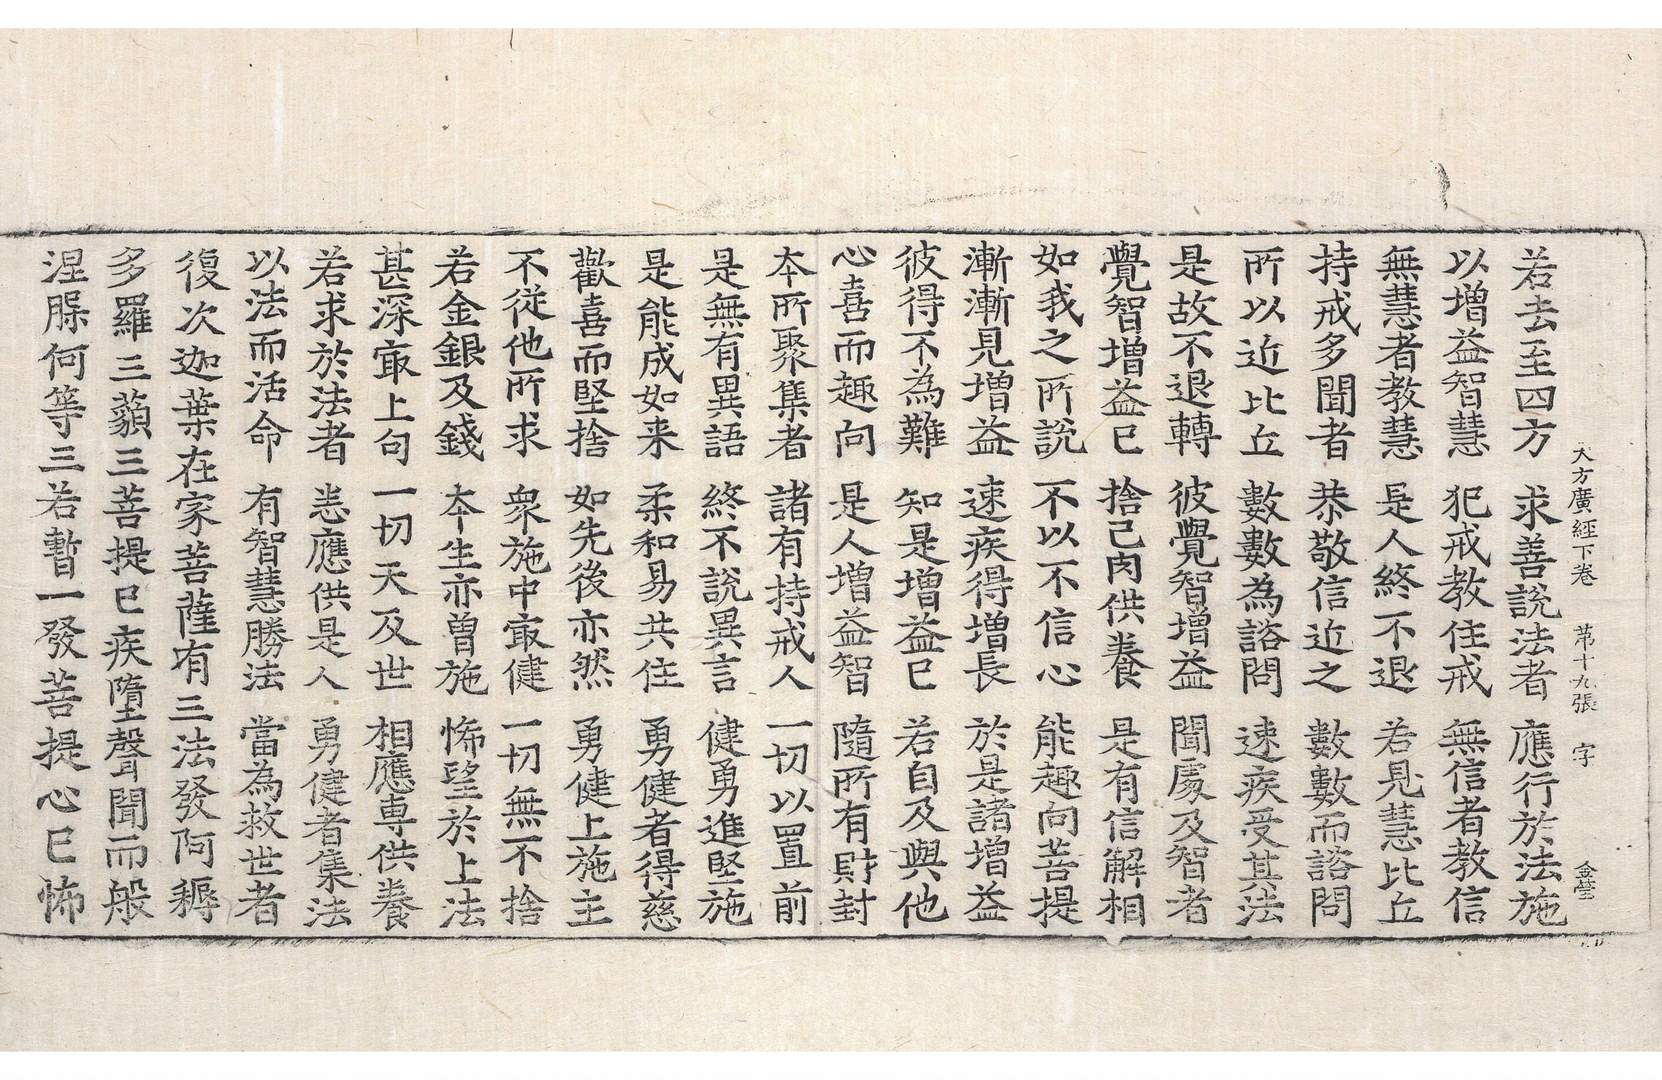 大方廣經下卷 苐十九張 字
若去至四方 求善説法者 應行於法施
以增益智慧 犯戒教住戒 無信者教信
無慧者教慧 是人終不退 若見慧比丘
持戒多聞者 恭敬信近之 數數而諮問
所以近比丘 數數為諮問 速疾受其法
是故不退轉 彼覺智增益 聞處及智者
覺智增益已 捨己肉供養 是有信解相
如我之所説 不以不信心 能趣向菩提
漸漸見增益 速疾得增長 於是諸增益
彼得不為難 知是增益已 若自及與他
心喜而趣向 是人增益智 隨所有財封
本所聚集者 諸有持戒人 一切以置前
是無有異語 終不説異言 健勇進堅施
是能成如来 柔和易共住 勇健者得慈
歡喜而堅捨 如先後亦然 勇健上施主
不從他所求 衆施中㝡健 一切無不捨
若金銀及錢 本生亦曽施 怖望於上法
甚深㝡上句 一切天及世 相應専供養
若求於法者 恙應供是人 勇健者集法
以法而活命 有智慧勝法 當為救世者
復次迦葉在家菩薩有三法發阿耨
多羅三藐三菩提已疾墮聲聞而般
涅脲何等三若暫一發菩提心已怖